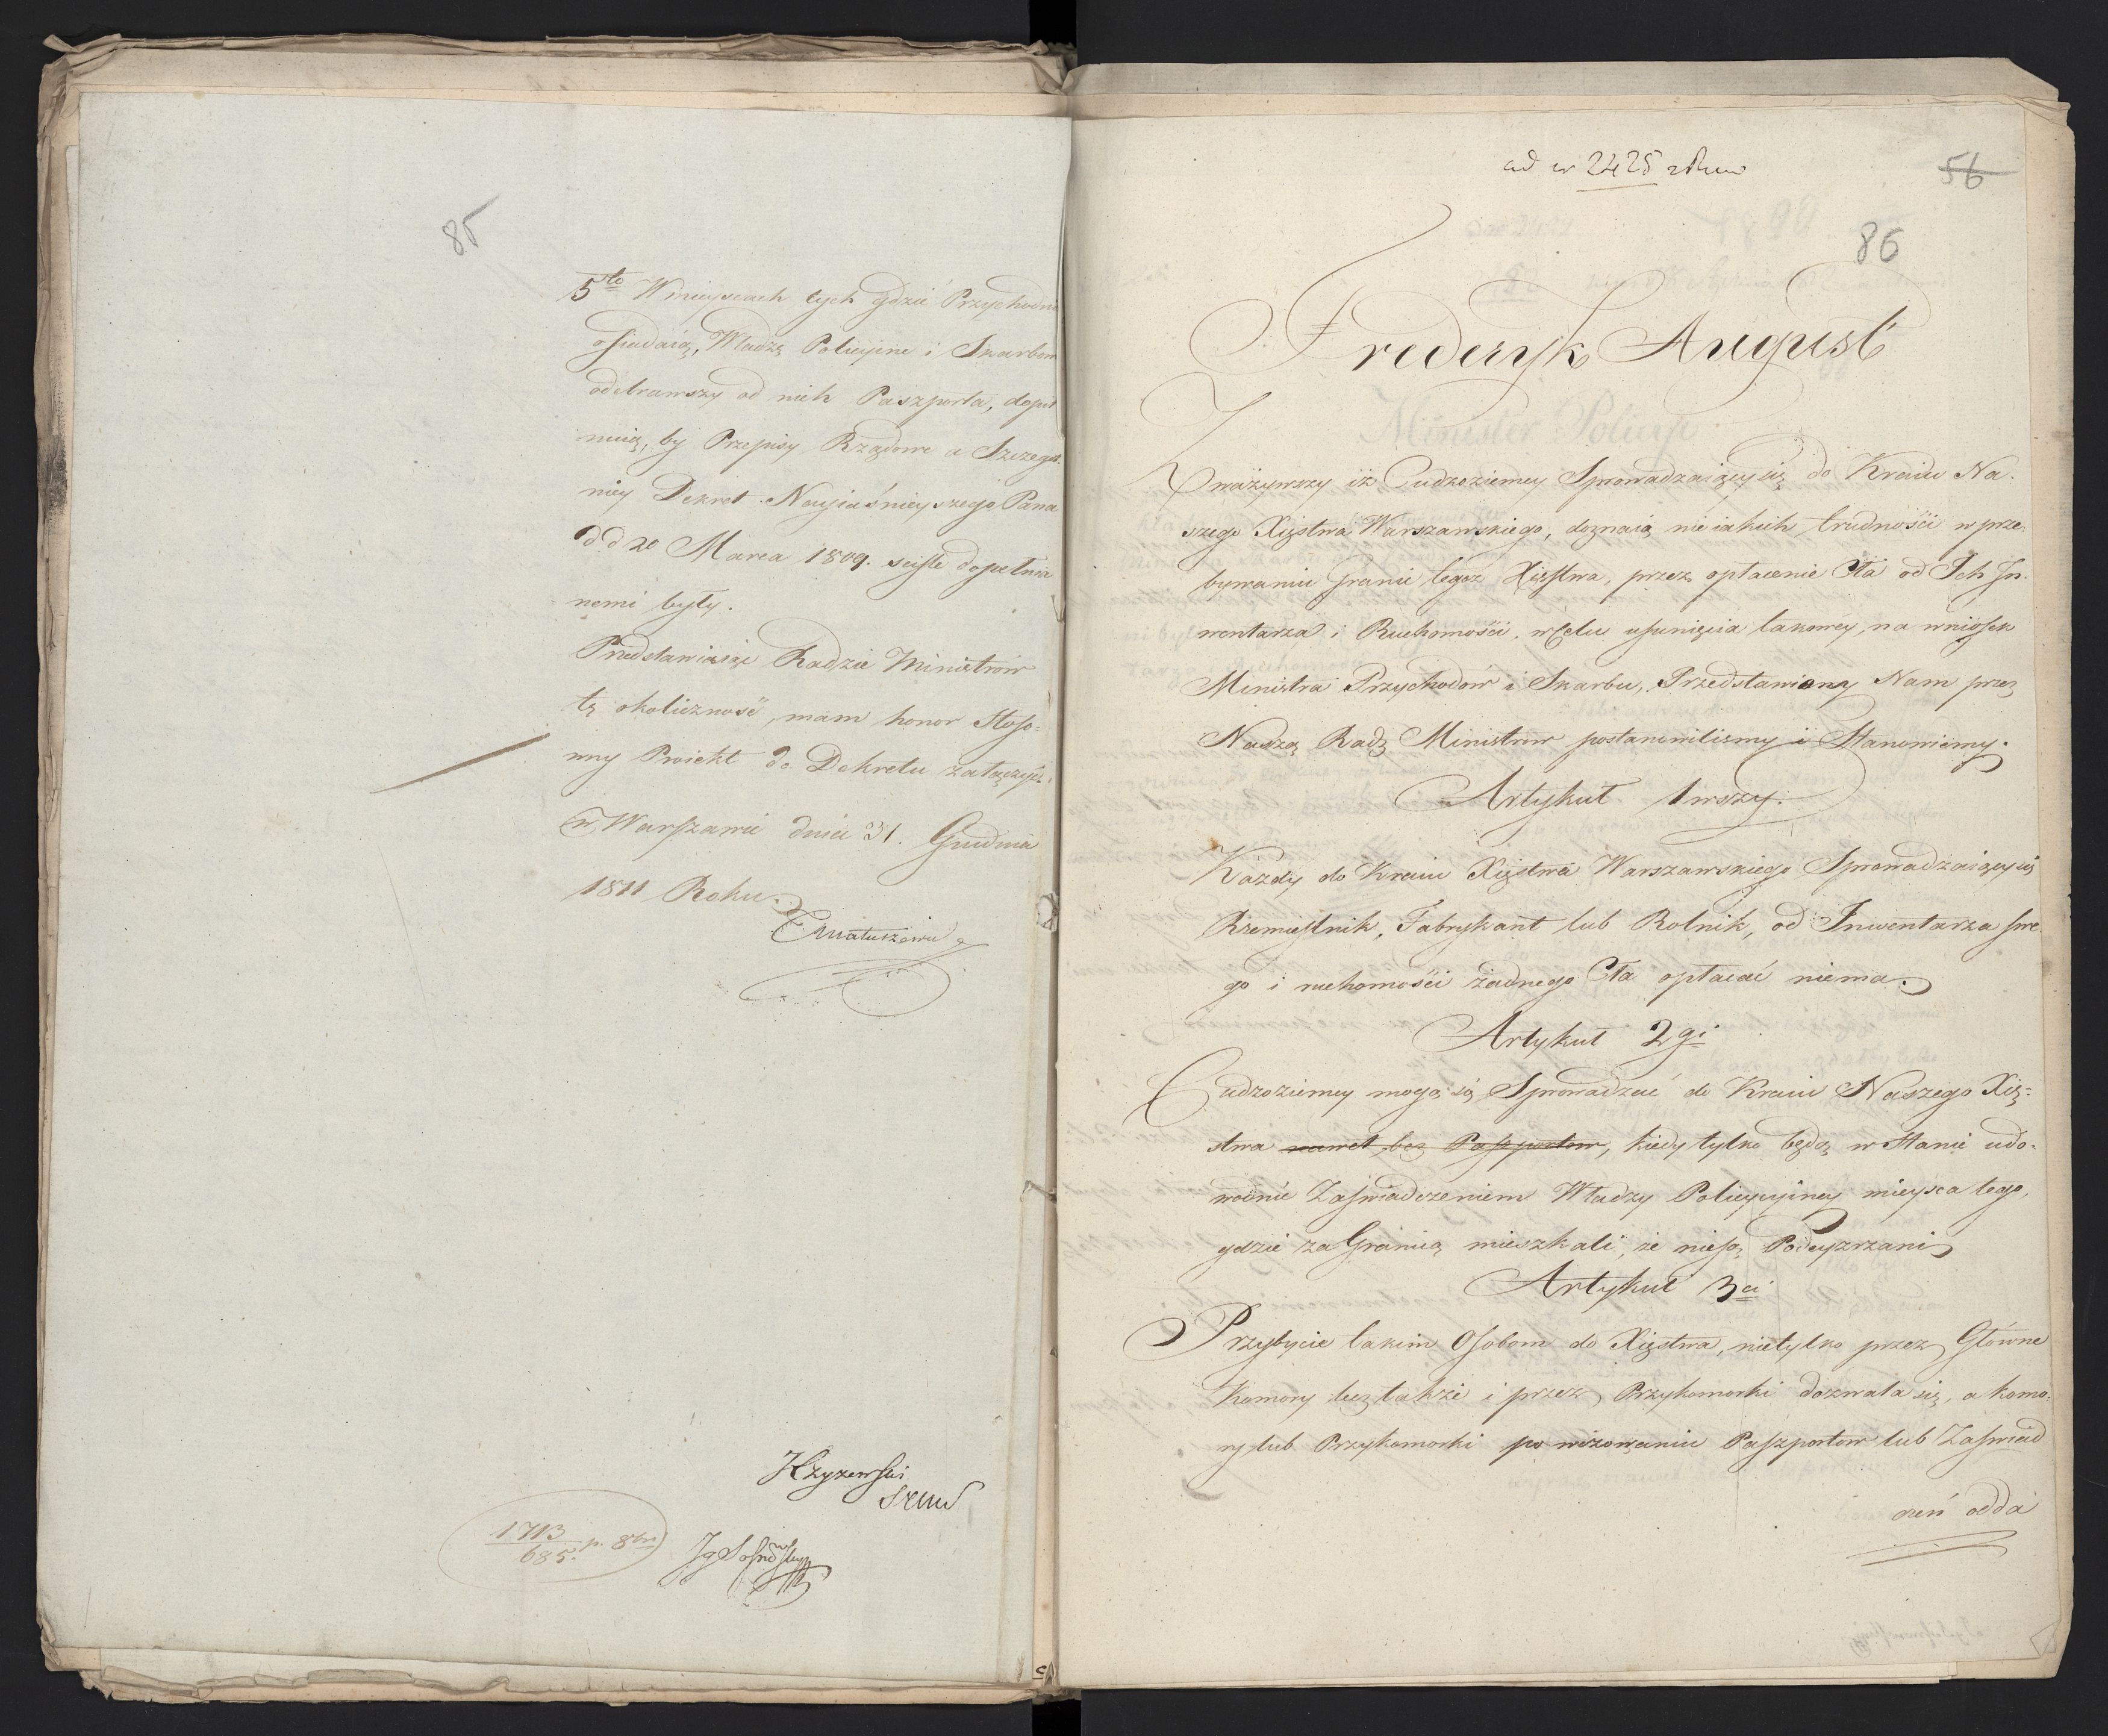 85
5te W mieyscach tych gdzie Przychodnie
osiadaią, Władze Policyine i Skarbowe
odebrawszy od nich Paszporta, dopil
nuią, by Przepisy Rządowe a Szczegól
niey Dekret Nayiaśnieyszego Pana
d.d 20 Marca 1809. ściśle dopełnia
nemi były.
Przedstawiaiąc Radzie Ministrów
tę okoliczność, mam honor Stoso-
wny Proiekt do Dekretu załączyć.
w Warszawie dnia 31. Grudnia
1811 Roku.
Matuszewic
1713
685. p. 8br
ad N 2425
56
86
Fryderyk August
Zważywszy iż Cudzoziemcy Sprowadzaiący się do Kraiu Na-
szego Xięstwa Warszawskiego, doznaią nieiakich trudności w prze-
bywaniu Granic tegoż Xięstwa, przez opłacenie Cła od Ich In-
wentarza i Ruchomości, w Celu usunięcia takowey, na wniosek
Ministra Przychodów i Skarbu, Przedstawiony Nam przez
Naszą Radę Ministrów postanowiliśmy i Stanowiemy.
Artykuł 1wszy.
Każdy do Kraiu Xięstwa Warszawskiego Sprowadzaiący się
Rzemieślnik, Fabrykant lub Rolnik, od Inwentarza swe
go i ruchomości żadnego Cła opłacać niema.
Artykuł 2gi
Cudzoziemcy mogą się Sprowadzać do Kraiu Naszego Xię-
stwa nawet bez Passportow, kiedy tylko będą w Stanie udo-
wodnić Zaświadczeniem Władzy Policyiney mieysca tego,
gdzie za Granicą mieszkali, że niesą Podeyrzani
Artykuł 3ci
Przybycie takim Osobom do Xięstwa, nietylko przez Główne
Komory lecz także i przez Przykomorki dozwala się, a komo-
ry lub Przykomorki po wizowaniu Paszportow lub Zaświad
czeń odda